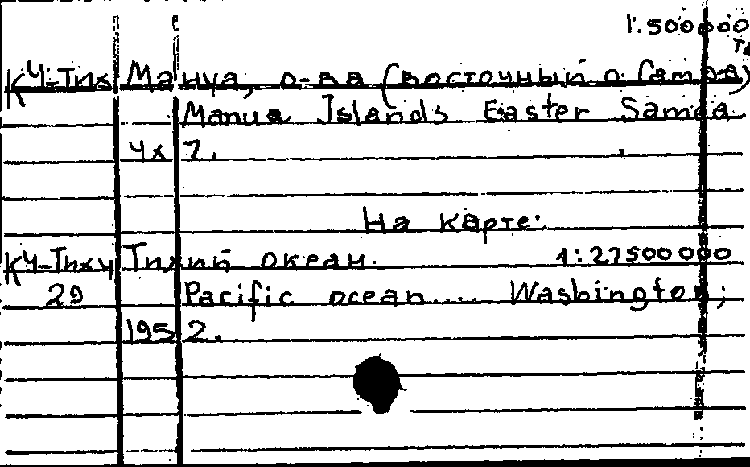 1:500000
К4-Тих Мануа, о-ва (восточный о. Самоа)
Manua Islands Easter Samoa
4x7.
На карте:
К4-Тих4 Тихий океан. 1:27500000
29 Pacific ocean.... Washington;
1952.